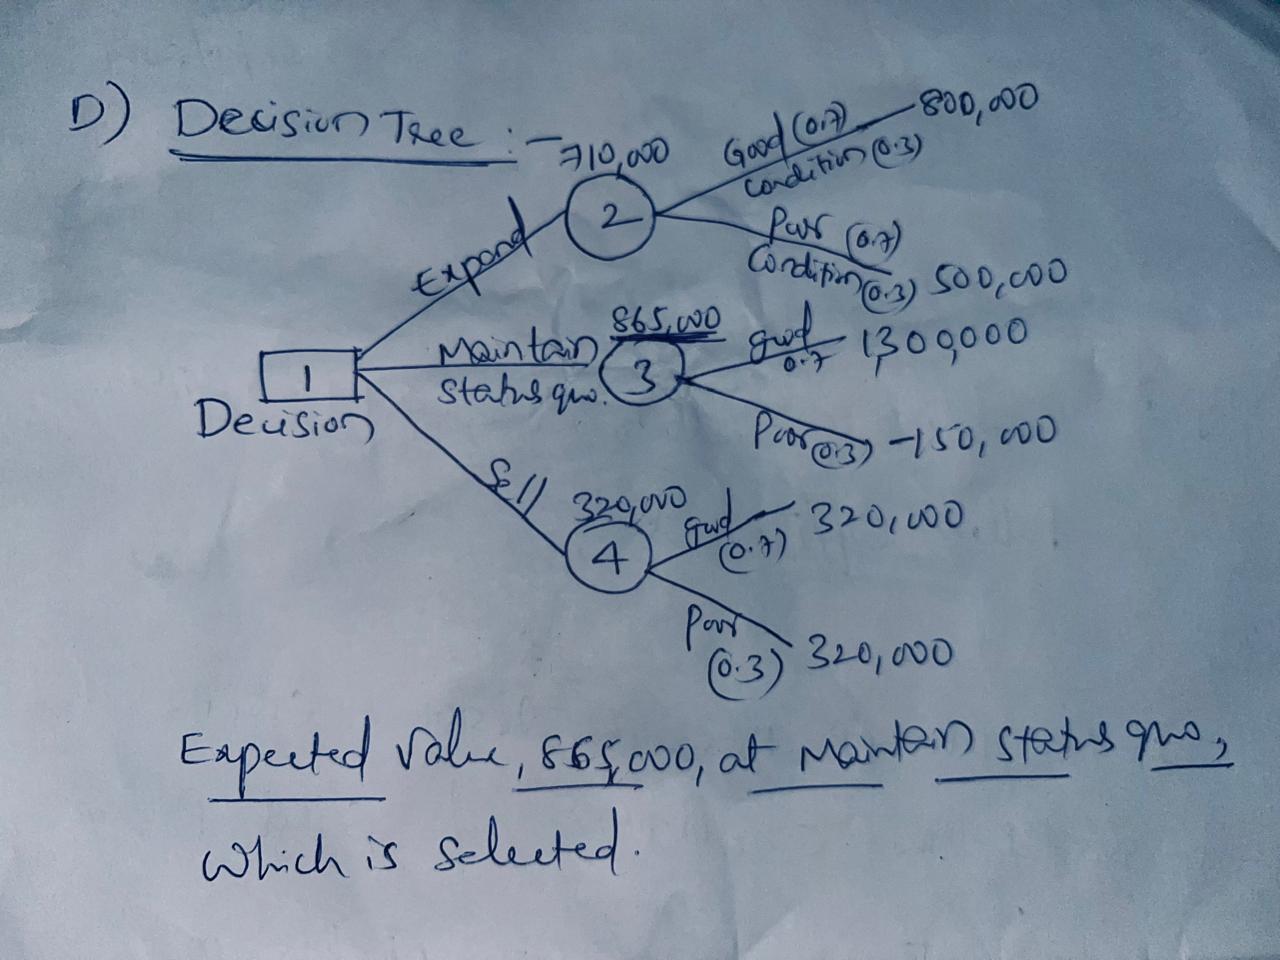 D) Decision Tree :-
710,000
Good (0.7)
Condition (0.3)
800,000
2
Expand
Poor (0.7)
Condition (0.3)
500,000
1
Decision
Maintain
status quo.
865,000
3
good
0.7
1,300,000
Poor (0.3)
-150,000
Sell
320,000
4
good
(0.7)
320,000
Poor
(0.3)
320,000
Expected Value, 865,000, at Maintain status quo,
which is selected.